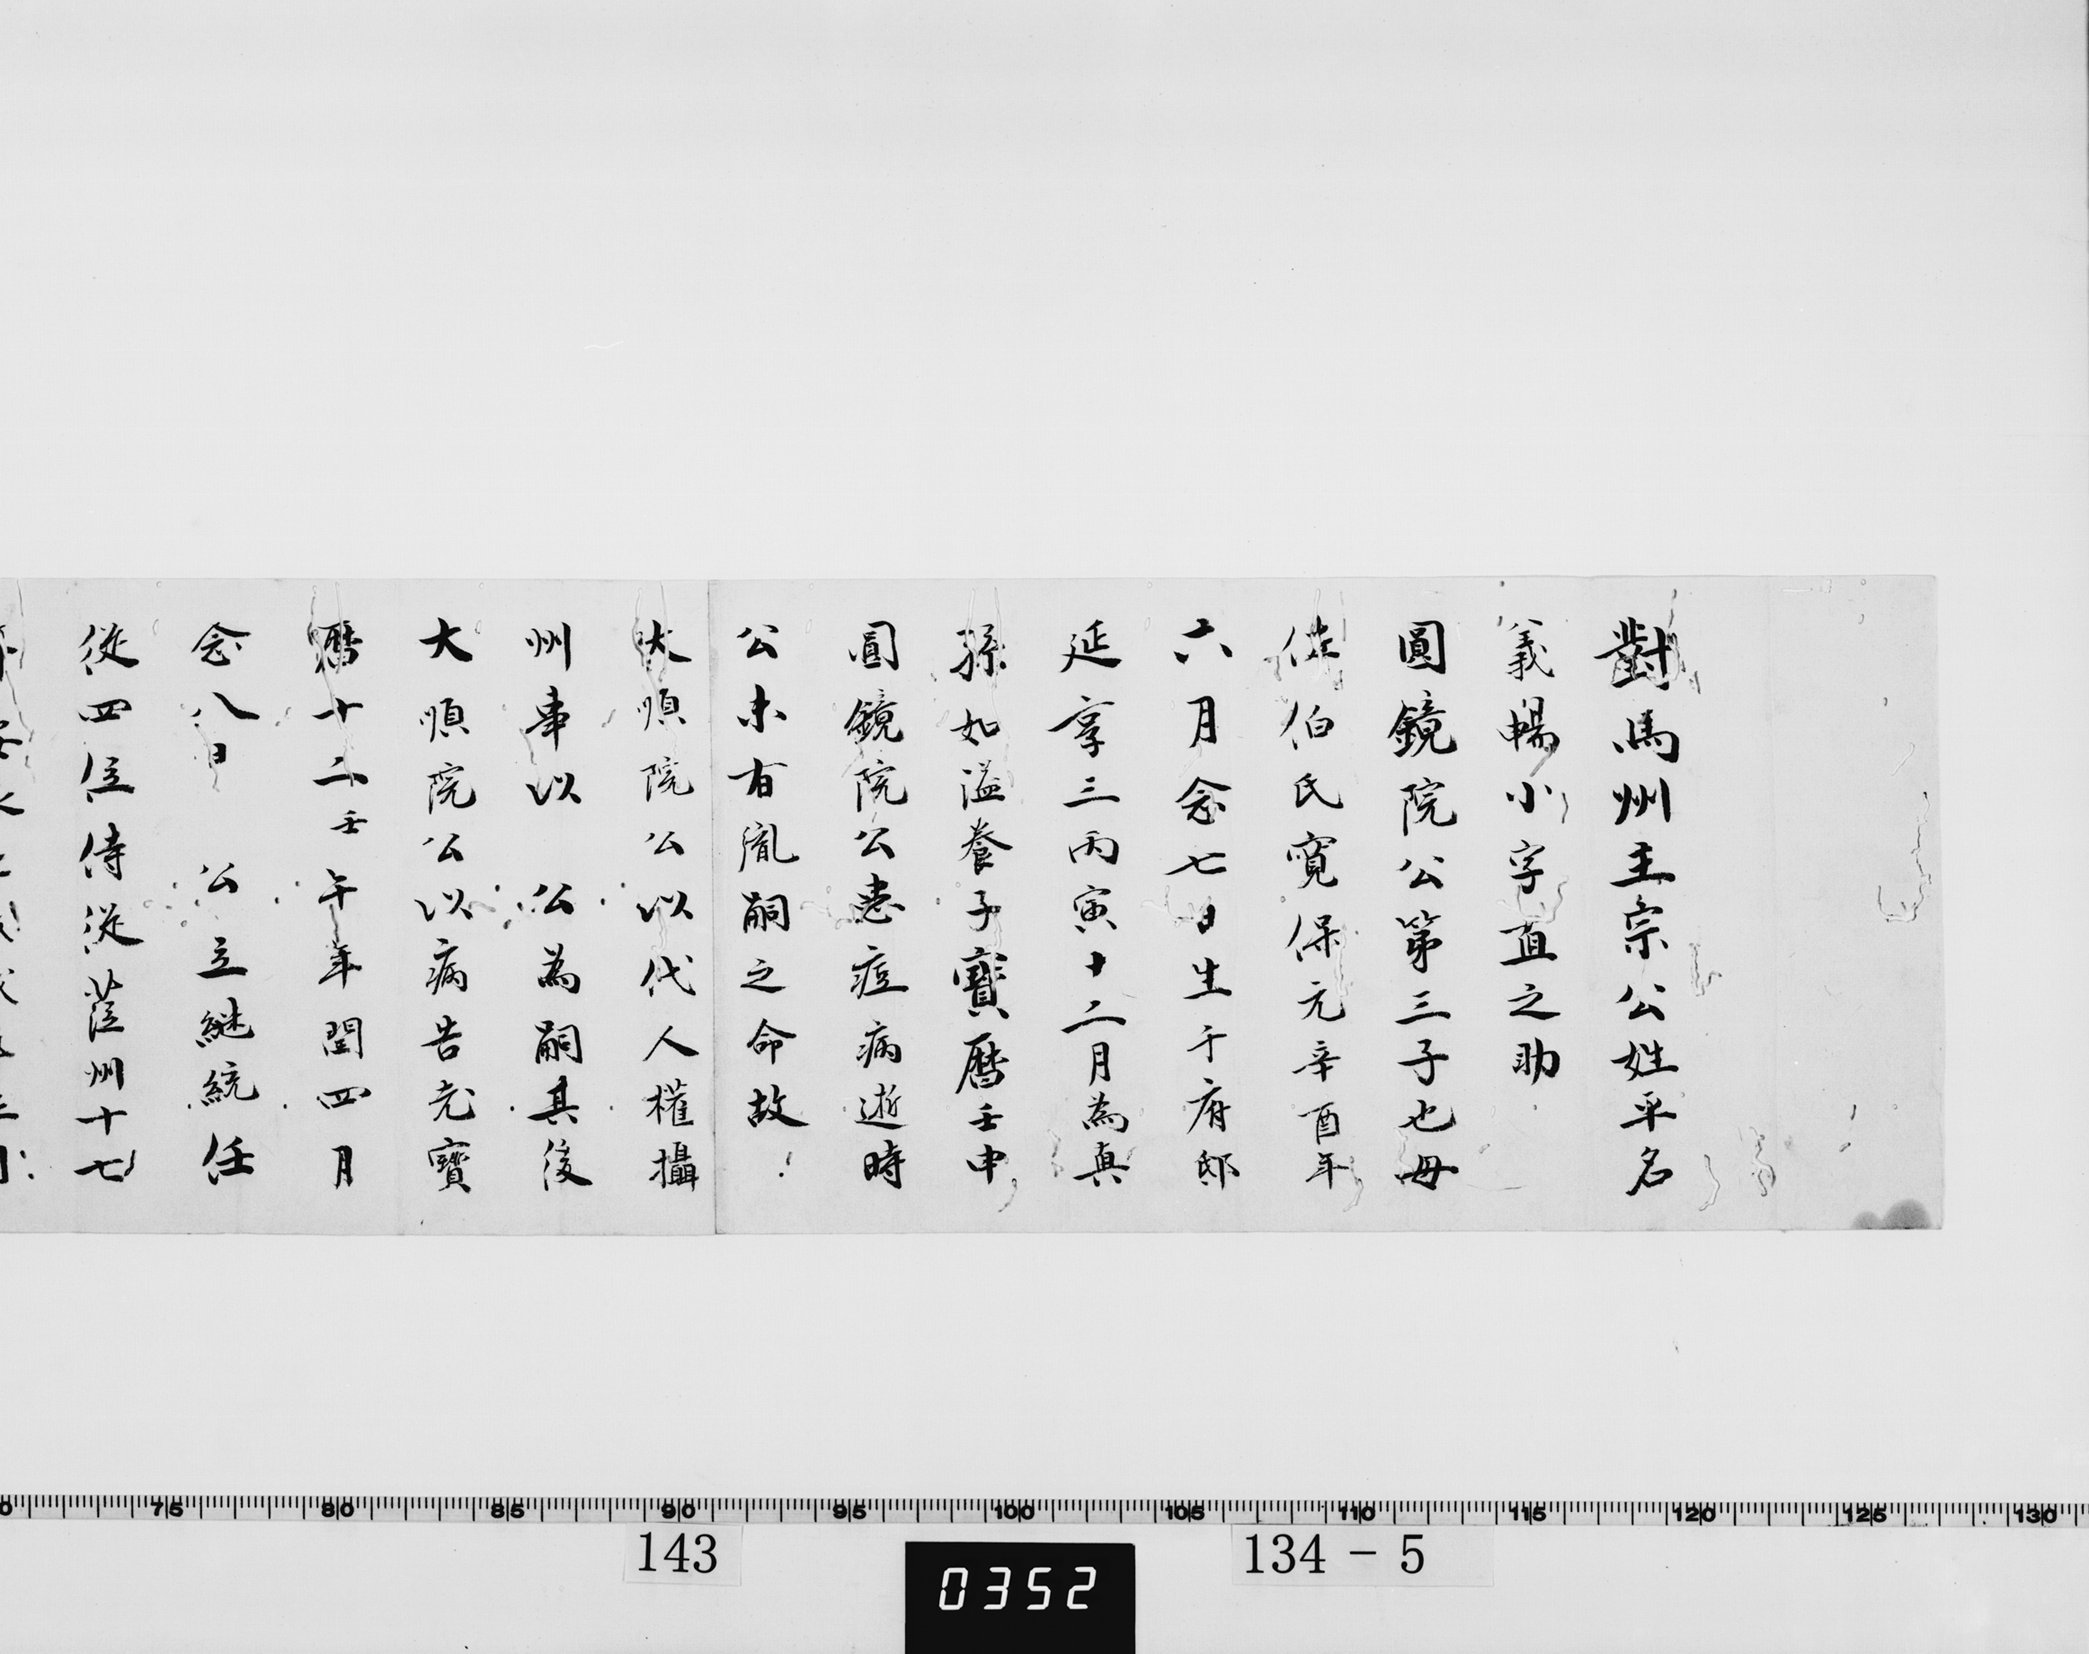 對馬州主宗公姓平名
義暢小字直之助
圓鏡院公第三子也母
佐伯氏寛保元辛酉年
六月念七日生于府邸
延享三丙寅十二月為真
孫如溢養子寶曆壬申
圓鏡院公患痘病逝時
公未有胤嗣之命故
大順院公以代人權攝
州事以 公為嗣其後
大順院公以病告老寶
曆十二壬午年閏四月
念八日 公立継統任
從四位侍從 薩州十七
75 80 85 90 95 100 105 110 115 120 125 130
143
0352
134-5